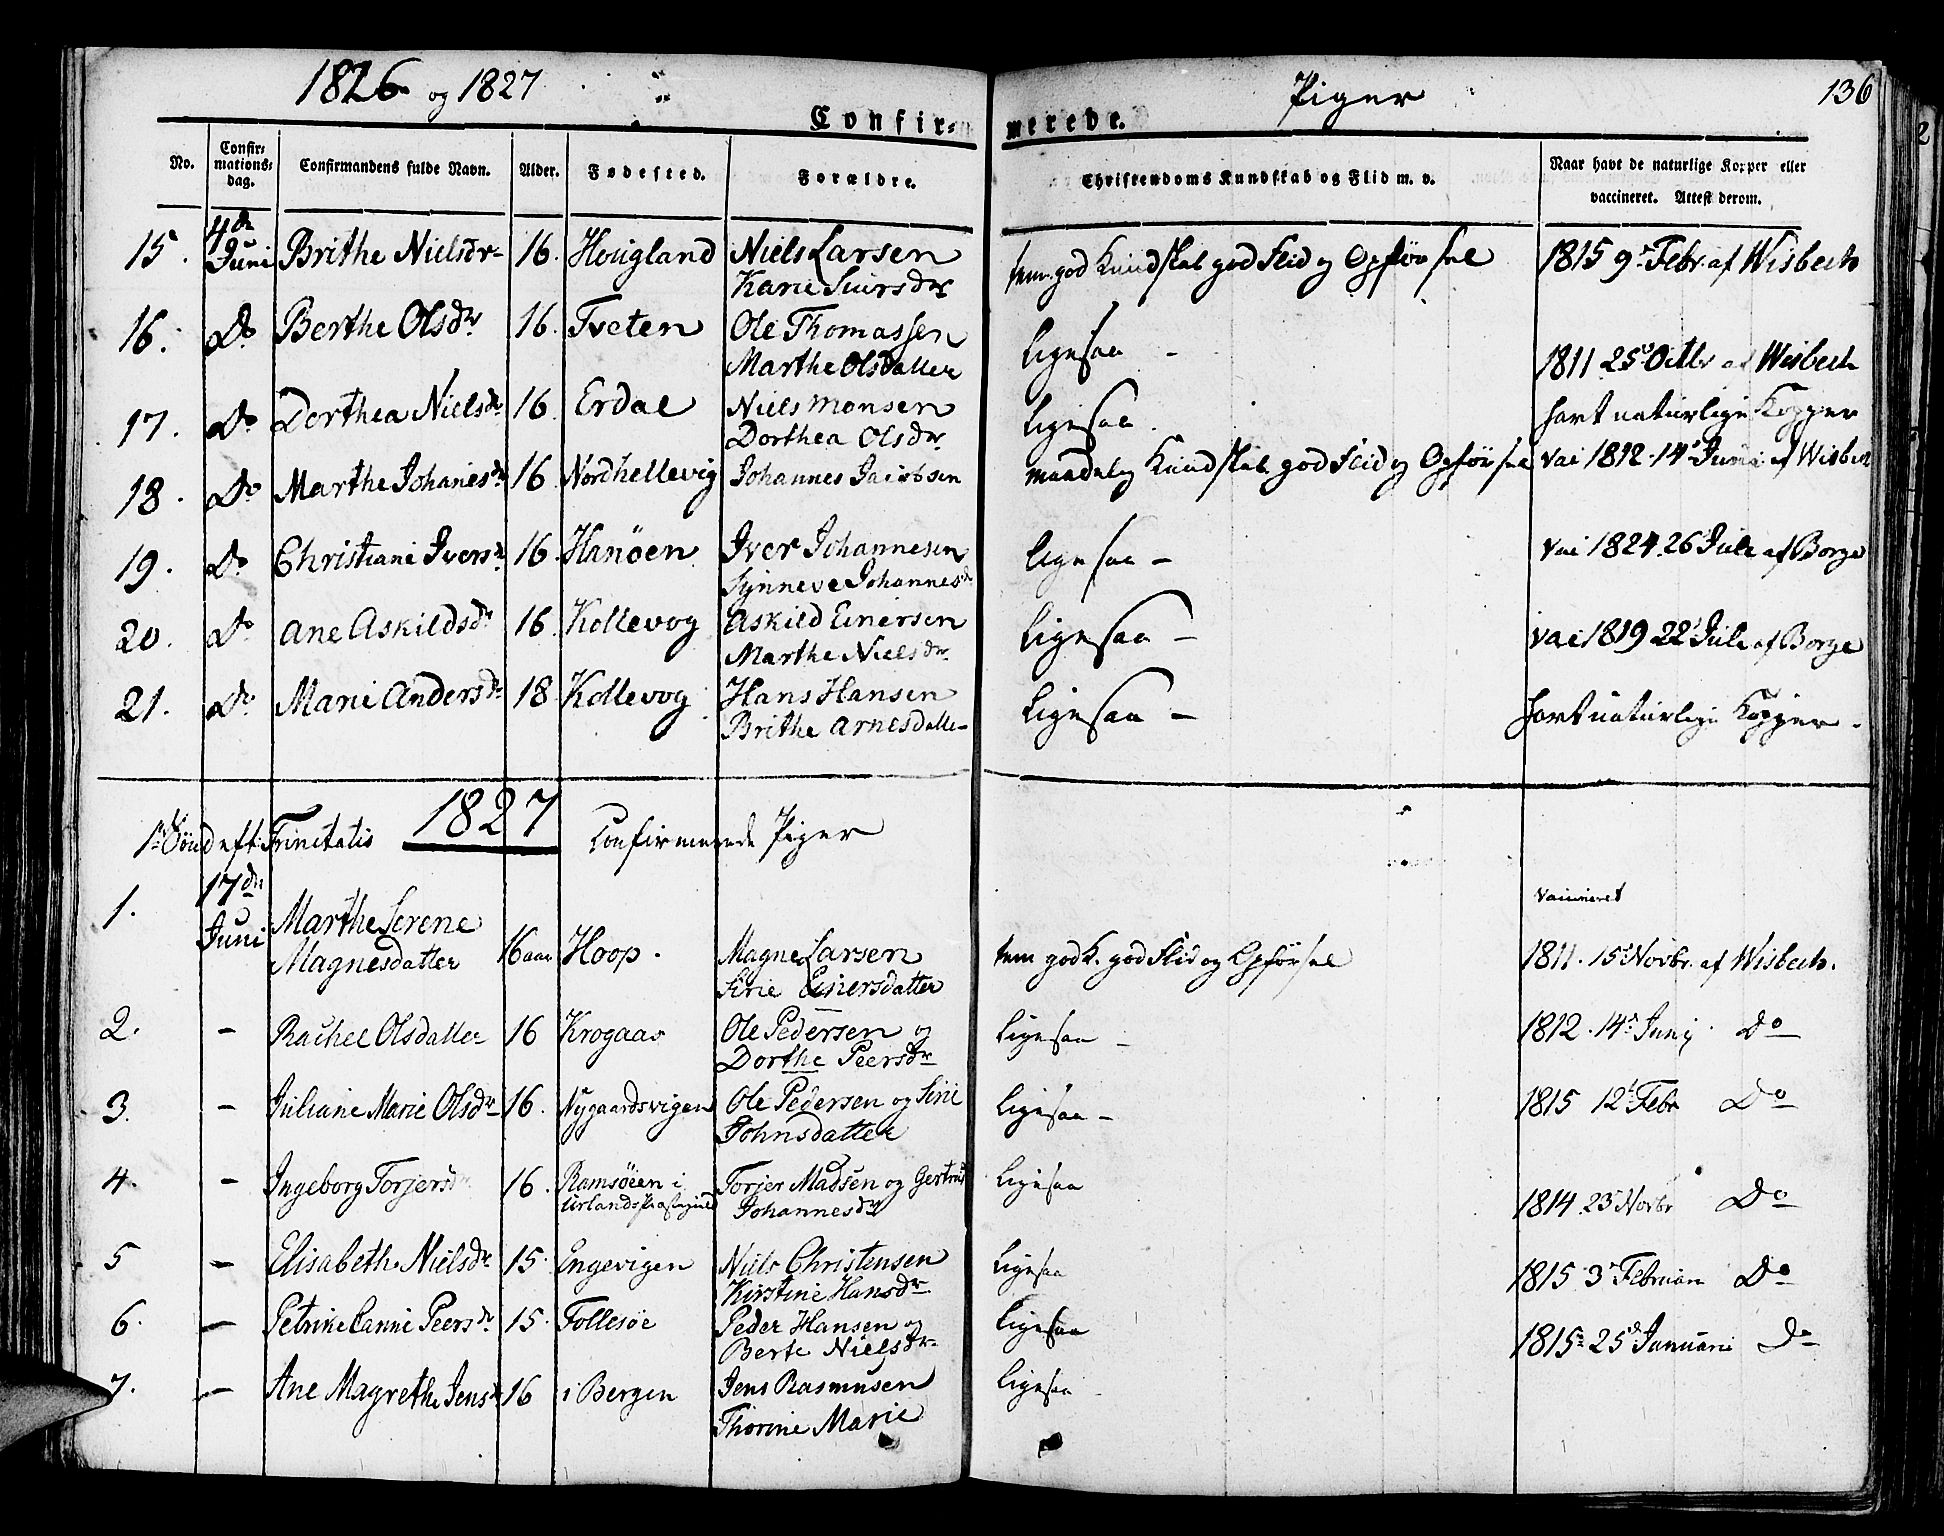 1826 og 1827
Piger
136
Confir-
merede.
No.
Confir-
mations-
dag.
Confirmandens fulde Navn.
Alder.
Fødested.
Forældre.
Christendoms Kundskab og Flid m. v.
Naar havt de naturlige Kopper eller
vaccineret. Attest derom.
15. 4de Juni Brithe Nielsdr 16. Hougland Niels Larsen tem. god Kundskab god Flid og Opførsel 1815 9 Febr. af Wisbech
Karie Siursdr
16. Do Berthe Olsdr 16. Tveten Ole Thomassen ligesaa - 1811 25 Octbr af Wisbech
Marthe Olsdatter
17. Do Dorthea Nielsdr 16. Erdal Niels Monsen ligesaa. havt naturlige Kopper
Dorthea Olsdr
18. Do Marthe Johanesdr 16. Nordhellevig Johannes Jacobsen maadelig Kundskab god Flid og Opførsel vac 1812. 14 Juni af Wisbech
19. Do Christiane Iversdr 16. Hanöen Iver Johannesen ligesaa - vac 1824. 26 Jule af Borge
Synneve Johannesdr
20. Do Ane Askildsdr 16. Kollevog Askild Einersen ligesaa - vac 1819 22 Jule af Borge
Marthe Nielsdr
21. Do Marie Andersdr 18 Kollevog Hans Hansen ligesaa - havt naturlige Kopper.
Brithe Arnesdatter
1 Sönd. eft. Trinitatis 1827 Confirmerede Piger
1. 17de Juni Marthe Serene vaccineret
Magnesdatter 16 aar Hoop. Magne Larsen tem god K. god Flid og Opførsel 1811. 15 Novbr. af Wisbech.
Sirie Einersdatter
2. - Rachel Olsdatter 16 Krogaas Ole Pedersen og ligesaa - 1812. 14 Junj. Do
Dorthe Peersdr
3. - Juliane Marie Olsdr 16. Nygaardsvigen Ole Pedersen og Sirie ligesaa - 1815 12 Febr Do
Johnsdatter
4. - Ingeborg Torjersdr 16. Ramsöen i Torjer Madsen og Gertrud ligesaa 1814. 23 Novbr Do
Johannesdr
5 - Elisabeth Nielsdr 15. Engevigen Niels Christensen ligesaa 1815 3 Februari Do
Kirstine Hansdr
6. - Petrine Canni Peersdr 15. Follesöe Peder Hansen og ligesaa 1815 25 Januari Do
Berte Nielsdr
7. - Ane Magrethe Jensdr 16 i Bergen Jens Rasmusen ligesaa -
Thorine Marie